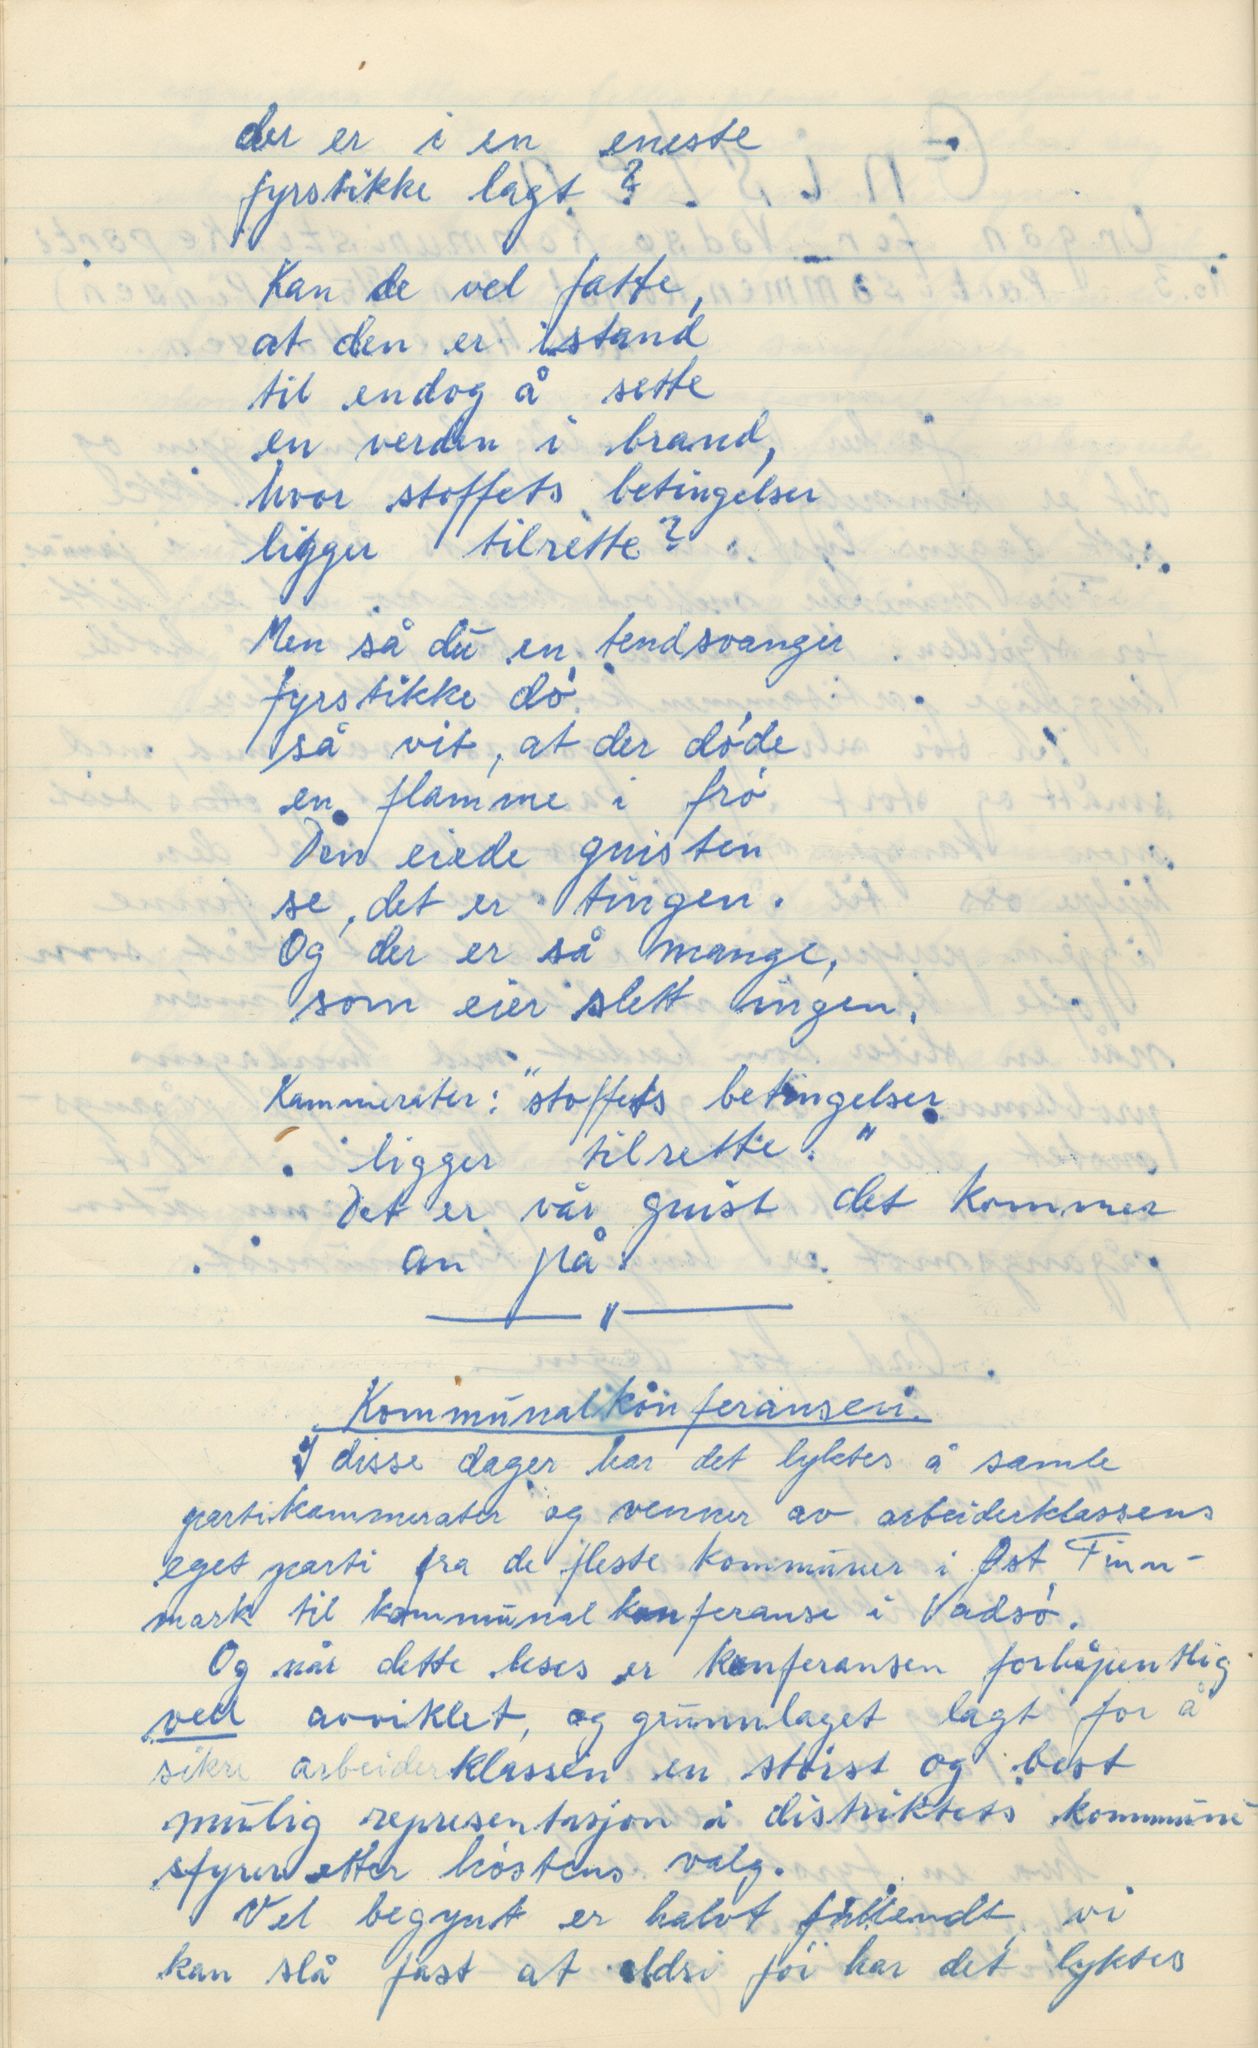 der er i en eneste
fyrstikke lagt?
Kan de vel fatte,
at den er istand
til endog å sette
en verden i brand,
hvor stoffets betingelser
ligger tilrette?
Men så du en tendsvanger
fyrstikke dö
så vit, at der döde
en flamme i frö
Den eiede gnisten
se, det er tingen.
Og der er så mange,
som eier slett ingen.
Kammerater: "stoffets betingelser
ligger tilrette."
Det er vår gnist det kommer
an på.
Kommunalkonferansen.
I disse dager har det lyktes å samle
partikammerater og venner av arbeiderklassens
eget parti fra de fleste kommuner i Øst Finn-
mark til kommunalkonferanse i Vadsö.
Og når dette leses er konferansen forhåpentlig
vel avviklet, og grunnlaget lagt for å
sikre arbeiderklassen en störst og best
mulig representasjon i distriktets kommune
styrer etter höstens valg.
Vel begynt er halvt fullendt, vi
kan slå fast at aldri för har det lyktes